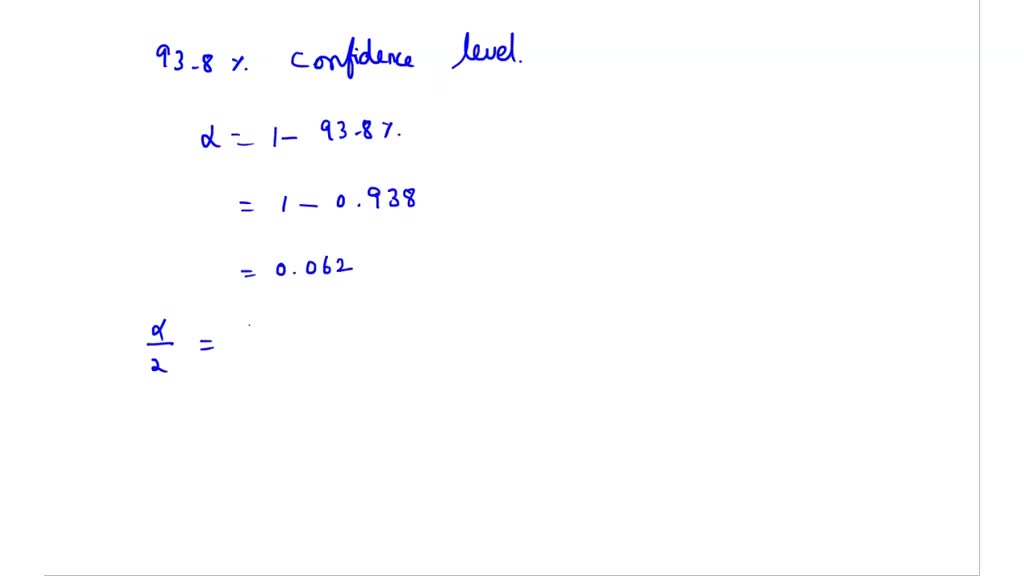 93.8 %. confidence level.
α = 1 - 93.8%.
= 1 - 0.938
= 0.062
α/2 =